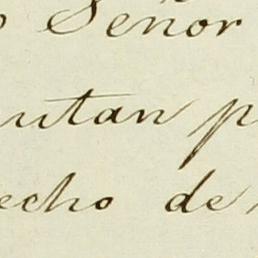 o Señor
utan p
echo de